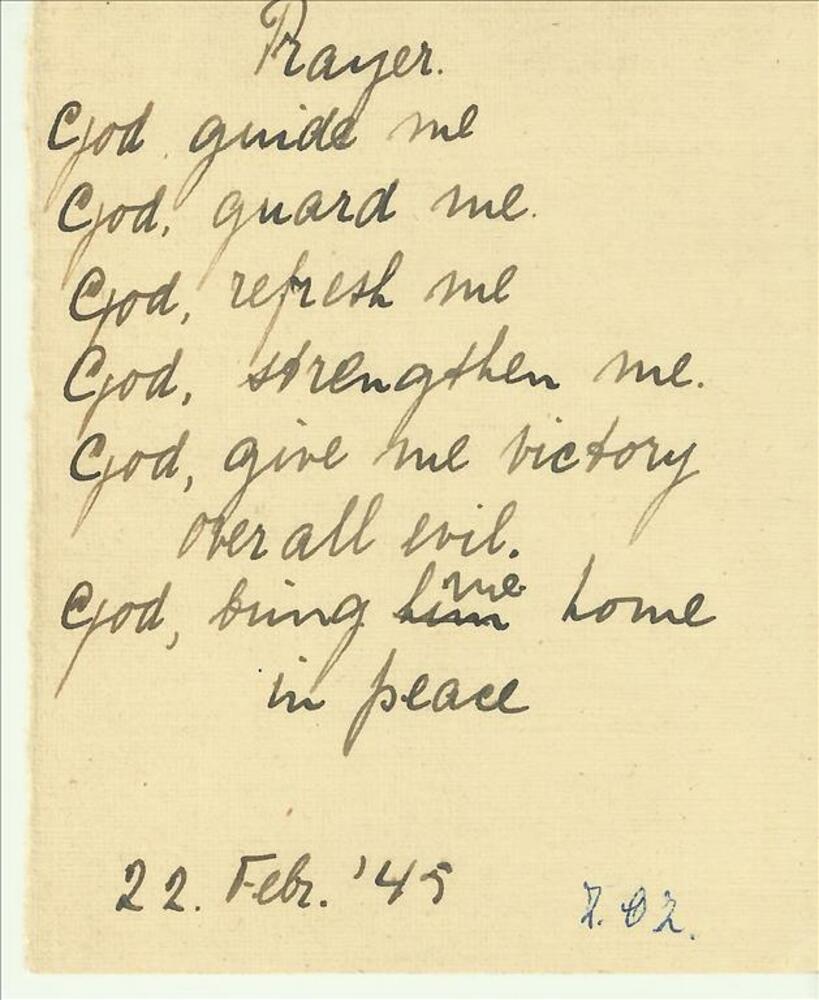 Prayer.
God guide me
God, guard me.
God, refresh me
God, strengthen me.
God, give me victory
over all evil.
God, bring him me home
in peace
22. Febr. '45